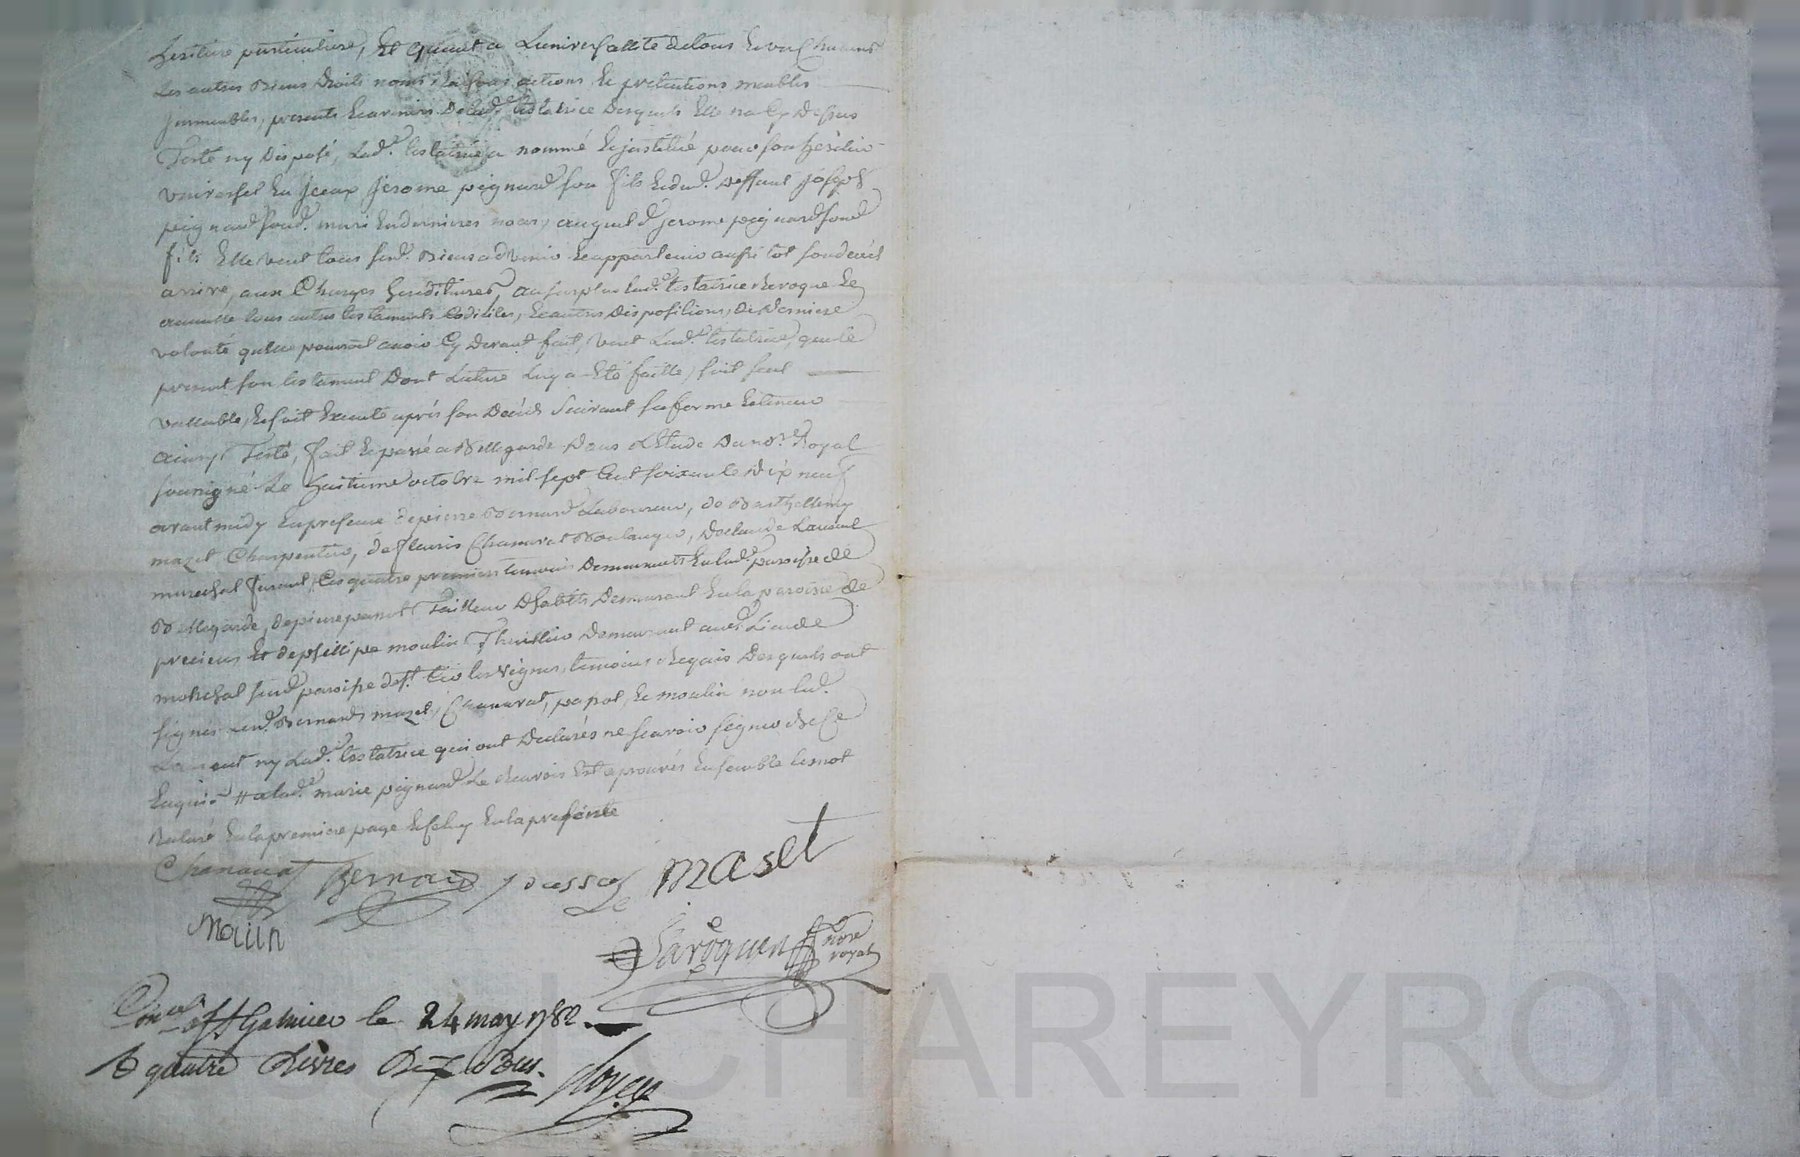 heritiere particuliere, Et quant a Luniversallité detous Et un Chacuns
Les autres Biens Droits noms, Raisons actions Et pretentions meubles
Jmmeubles, presents Eeavenirs Delad.e testatrice Desquels Elle na Cy Dessus
Testé ny Disposé, Lad.e testatrice a nommé Ee justitué pour son heritier
universel En Jceux Jerome peignard son fils Eedud. Deffunt Joseph
peignard sond. mari Endernieres noces, auquel d. Jerome peignard sond
fils Elle veut tous sesd. Biens advenir Eeappartenir aussi tot sondecés
arrivé, aux Charges hereditaires, au surplus Lad.e testatrice Revoque Ee
annulle tous autres testaments Codiciles, Eeautres Dispositions, De Derniere
volonté quelle pourroit avoir Cy Devant fait, veut Lad.e testatrice, que le
present son testament Dont Lecture Luy a Eté faitte, soit seul
vallable, Eesoit Executé aprés son Decéds Suivant sa forme Eeteneur
ainsy Testé, fait Eepassé a Bellegarde Dans LEtude Du no.re Royal
soussigné Le huitieme octobre mil sept Cent soixante Dix neuf
avant midy Enpresence depierre Bernard Laboureur, de Barthellemy
mazet Charpentier, de fleuris Chanavat Boulanger, Declaude Laurent
marechal ferant, Ces quatre premiers temoins Demeurants Enlad.e paroisse de
Bellegarde, depierre Tailleur Dhabits Demeurant Enla paroisse de
precieux Et dephilippe moulin Thuillier Demeurant au Lieu de
susd. paroisse de S.t les vignes, temoins Requis Desquels ont
signés Lesd. Bernard, mazet, Chanavat, Ee moulin non Led.
Laurent ny Lad.e testatrice qui ont Declarés ne scavoir signer De Ce
Enquis # alad.e marie peignard Le Renvois Est aprouvés Ensemble Lemot
Raturé Enla premiere page Ee Enla presente
Chanavat Bernard maset
Moulin
no.re
royal
Con.lé a S.t Galmier le 24 may 1782.
R quatre Livres Dix Sous.